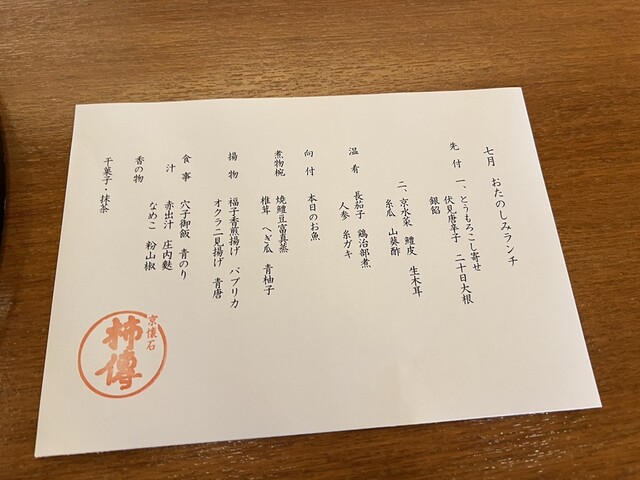 七月　おたのしみランチ
先付　一、とうもろこし寄せ
伏見唐辛子　二十日大根
銀餡
二、京水菜　鱧皮　生木耳
糸瓜　山葵酢
温肴　長茄子　鶏治部煮
人参　糸ガキ
向付　本日のお魚
煮物椀　焼鱧豆富真蒸
椎茸　へぎ瓜　青柚子
揚物　福子香煎揚げ　パプリカ
オクラ二見揚げ　青唐
食事　穴子御飯　青のり
汁　赤出汁　庄内麩
なめこ　粉山椒
香の物
干菓子・抹茶
京懐石
柿傳